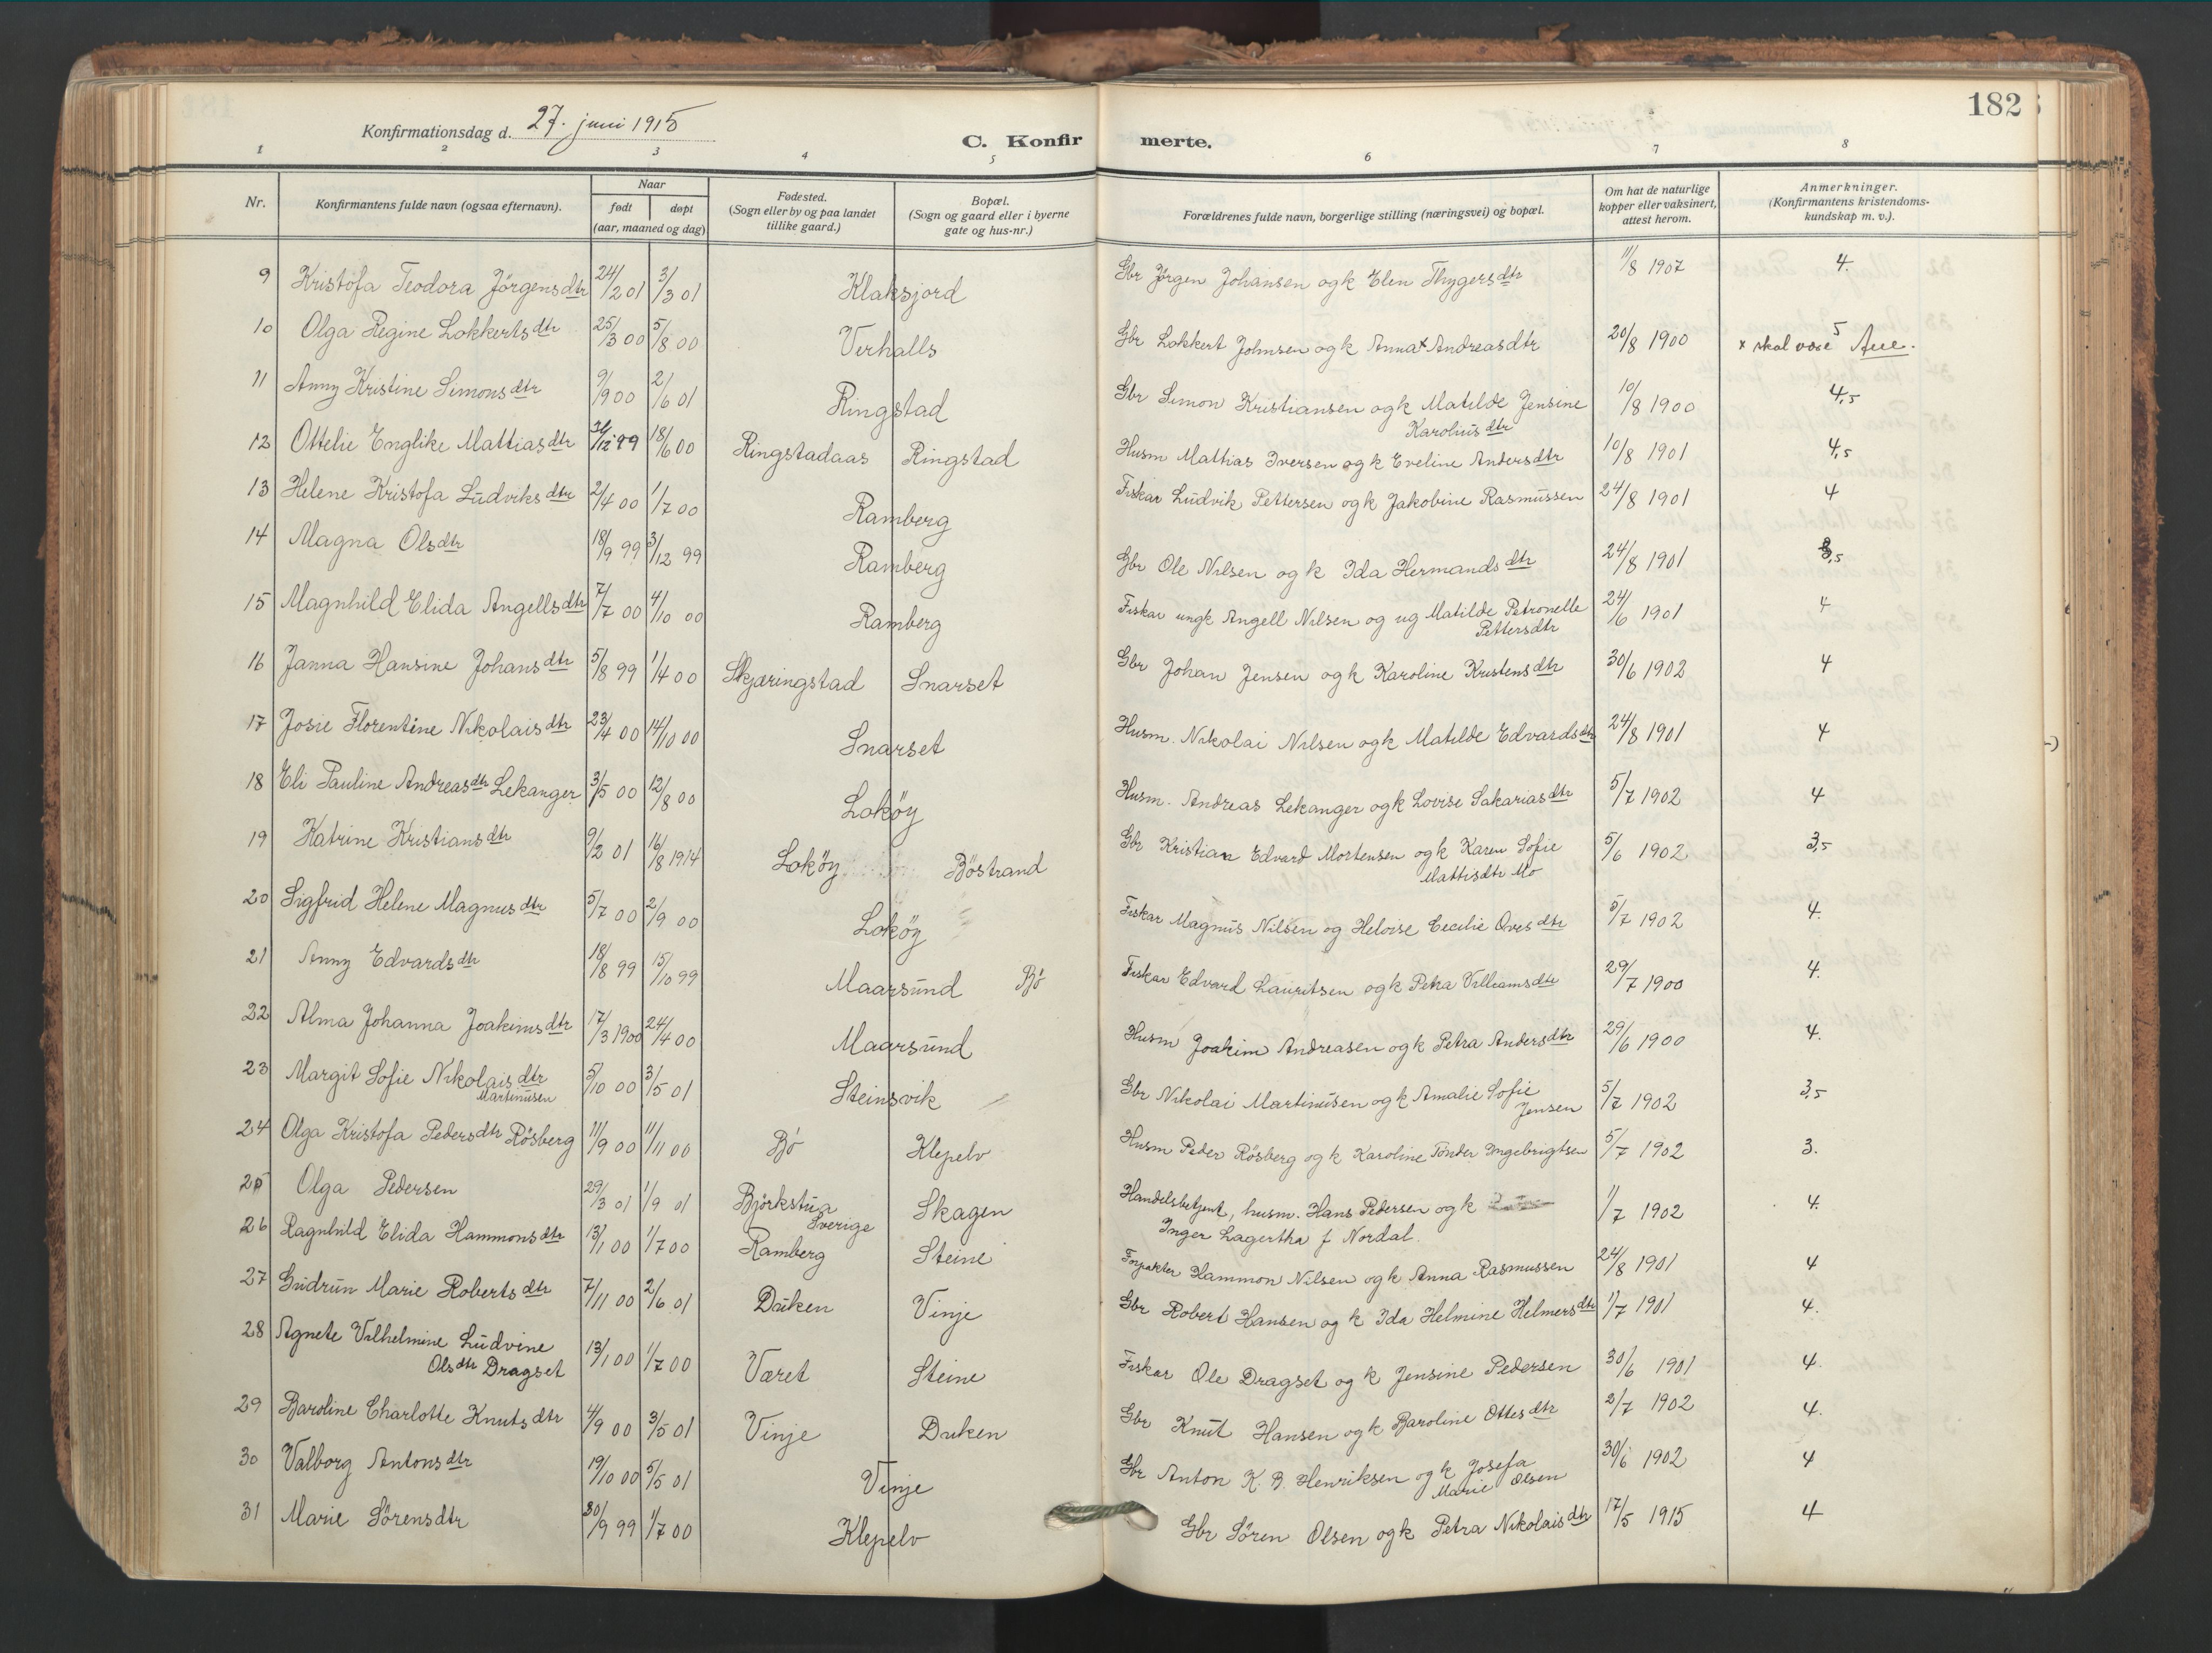 182
Konfirmationsdag d. 27. juni 1915
C. Konfirmerte.
1 2 3 4 5 6 7 8
Nr. | Konfirmantens fulde navn (ogsaa efternavn). | Naar født døpt (aar, maaned og dag) | Fødested. (Sogn eller by og paa landet tillike gaard.) | Bopæl. (Sogn og gaard eller i byerne gate og hus-nr.) | Forældrenes fulde navn, borgerlige stilling (næringsvei) og bopæl. | Om hat de naturlige kopper eller vaksinert, attest herom. | Anmerkninger. (Konfirmantens kristendoms-kundskap m. v.).
9 Kristofa Teodora Jörgensdtr 24/2 01 3/3 01 Klaksjord Gbr Jørgen Johansen og k Elen Thygersdtr 11/8 1907 4.
10 Olga Regine Lokkertsdtr 25/3 00 5/8 00 Verhalls Gbr Lokkert Johnsen og k Anna x Andreasdtr 20/8 1900 5 x skal være Ane.
11 Anny Kristine Simonsdtr 9/9 00 2/6 01 Ringstad Gbr Simon Kristiansen og k Matilde Jensine Karoliusdtr 10/8 1900 4,5
12 Ottelie Englike Mattiasdtr /12 99 18/6 00 Ringstadaas Ringstad Husm Mattias Iversen og k Eveline Andersdtr 10/8 1901 4,5
13 Helene Kristofa Ludviksdtr 2/4 00 1/7 00 Ramberg Fiskar Ludvik Pettersen og k Jakobine Rasmussen 24/8 1901 4
14 Magna Olsdtr 18/9 99 3/12 99 Ramberg Gbr Ole Nilsen og k Ida Hermandsdtr 24/8 1901 3,5
15 Magnhild Elida Angellsdtr 7/7 00 4/10 00 Ramberg Fiskar ungk Angell Nilsen og ug Matilde Petronelle Pettersdtr 24/6 1901 4
16 Janna Hansine Johansdtr 5/8 99 1/4 00 Skjæringstad Snarset Gbr Johan Jensen og k Karoline Kristensdtr 30/6 1902 4
17 Josie Florentine Nikolaisdtr 23/4 00 14/10 00 Snarset Husm. Nikolai Nilsen og k Matilde Edvardsdtr 24/8 1901 4
18 Eli Pauline Andreasdtr Lekanger 3/5 00 12/8 00 Loköy Husm. Andreas Lekanger og k Lovise Sakariasdtr 5/7 1902 4
19 Katrine Kristiansdtr 9/2 01 16/8 1914 Loköy Böstrand Gbr Kristian Edvard Mortensen og k Karen Sofie Mattisdtr Mo 5/6 1902 3,5
20 Sigfrid Helene Magnusdtr 5/7 00 2/9 00 Loköy Fiskar Magnus Nilsen og Heloise Cecilie Ovesdtr 5/7 1902 4.
21 Anny Edvardsdtr 18/8 99 15/10 99 Maarsund Bö Fiskar Edvard Lauritsen og k Petra Villiamsdtr 29/7 1900 4.
22 Alma Johanna Joakimsdtr 17/3 1900 24/4 00 Maarsund Husm Joakim Andreasen og k Petra Andersdtr 29/6 1900 4.
23 Margit Sofie Nikolaisdtr Martinusen 5/10 00 3/5 01 Steinsvik Gbr Nikolai Martinusen og k Amalie Sofie Jensen 5/7 1902 3,5
24 Olga Kristofa Pedersdtr Rösberg 11/9 00 11/11 00 Bö Klepelv Husm Peder Rösberg og k Karoline Tönder Ingebrigtsen 5/7 1902 3.
25 Olga Pedersen 29/3 01 1/9 01 Björkstua Sverige Skagen Handelsbetjent, husm. Hans Pedersen og k Inger Lagertha f Nordal. 1/7 1902 4.
26 Ragnhild Elida Hammonsdtr 13/1 00 1/7 00 Ramberg Steine Forpakter Hammon Nilsen og k Anna Rasmussen 24/8 1901 4
27 Gudrun Marie Robertsdtr 7/11 00 2/6 01 Duken Vinje Gbr Robert Hansen og k Ida Helmine Helmersdtr 1/7 1901 4.
28 Agnete Vilhelmine Ludvine Olsdtr Dragset 13/1 00 1/7 00 Været Steine Fiskar Ole Dragset og k Jensine Pedersen 30/6 1901 4.
29 Baroline Charlotte Knutsdtr 4/9 00 3/5 01 Vinje Duken Gbr Knut Hansen og k Baroline Ottesdtr 2/7 1902 4.
30 Valborg Antonsdtr 19/10 00 5/5 01 Vinje Gbr Anton K. B. Henriksen og k Josefa Marie Olsen 30/6 1902 4
31 Marie Sörensdtr 30/9 99 1/7 00 Klepelv Gbr Sören Olsen og k Petra Nikolaisdtr 17/5 1915 4